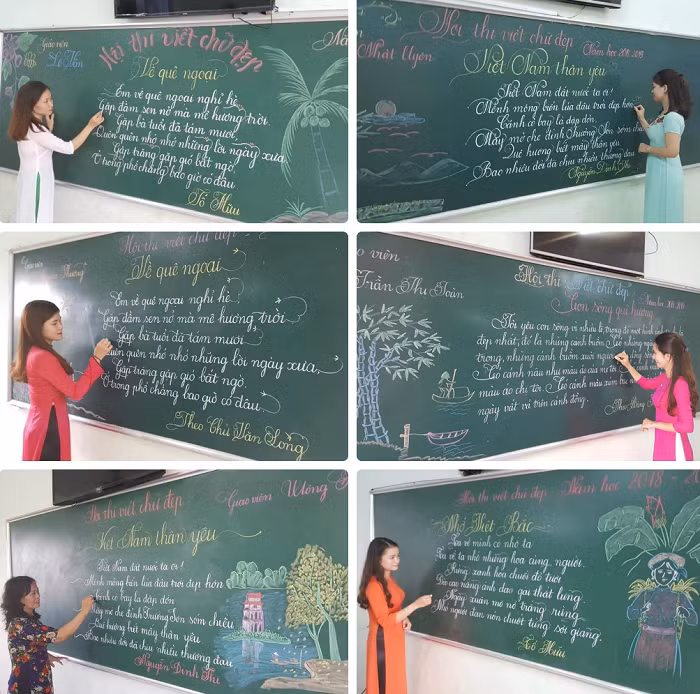 Giáo viên
Hội thi viết chữ đẹp
Về quê ngoại
Em về quê ngoại nghỉ hè
Gặp đầm sen nở mà mê hương trời.
Gặp bà tuổi đã tám mươi
Quên quên nhớ nhớ những lời ngày xưa
Gặp trăng gặp gió bất ngờ
Ở trong phố chẳng bao giờ có đâu
Tố Hữu
Hội thi viết chữ đẹp
Năm học 2018 2019
Nhật Uyên
Việt Nam thân yêu
Việt Nam đất nước ta ơi!
Mênh mông biển lúa đâu trời đẹp hơn
Cánh cò bay lả dập dờn
Mây mờ che đỉnh Trường Sơn sớm
Quê hương biết mấy thân yêu
Bao nhiêu đời đã chịu nhiều thương đau
Nguyễn Đình
Hội thi viết chữ đẹp
Giáo viên
Thương
Về quê ngoại
Em về quê ngoại nghỉ hè
Gặp đầm sen nở mà mê hương trời
Gặp bà tuổi đã tám mươi
Quên quên nhớ nhớ những lời ngày xưa
Gặp trăng gặp gió bất ngờ
Ở trong phố chẳng bao giờ có đâu
Theo Chử Văn Long
viên
Trần Thu Toàn
Hội thi viết chữ đẹp
Năm học
Con sông quê hương
Tôi yêu con sông vì nhiều lẽ, trong đó một hình ảnh
đẹp nhất, đó là những cánh buồm. Có những ngày
trong, những cánh buồm xuôi ngược
Có cánh nâu như màu áo của mẹ tôi.
màu áo chị tôi. Có cánh màu xám
ngày vất vả trên cánh đồng.
Theo
Hội thi viết chữ đẹp
Giáo viên
Việt Nam thân yêu
Việt Nam đất nước ta ơi!
Mênh mông biển lúa đâu trời đẹp hơn
Cánh cò bay lả dập dờn
Mây mờ che đỉnh Trường Sơn sớm chiều
Quê hương biết mấy thân yêu
Bao nhiêu đời đã chịu nhiều thương đau
Nguyễn Đình Thi
Hội thi viết chữ đẹp Năm học 2018 - 20
Nhớ Việt Bắc
Ta về mình có nhớ ta
Ta về, ta nhớ những hoa cùng người.
Rừng xanh hoa chuối đỏ tươi
Đèo cao nắng ánh dao gài thắt lưng.
Ngày xuân mơ nở trắng rừng
Nhớ người đan nón chuốt từng sợi giang.
Tố Hữu